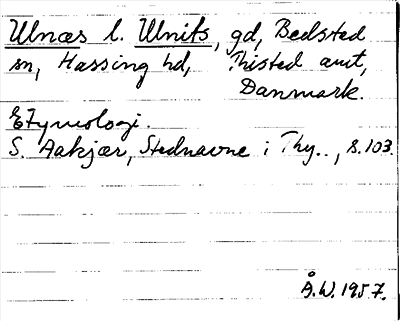 Ulnæs l. Ulnits, gd, Bedsted
sn, Hassing hd, Thisted amt,
Danmark.
Etymologi.
S. Aakjær, Stednavne i Thy.., s.103.
Å.W. 1957.